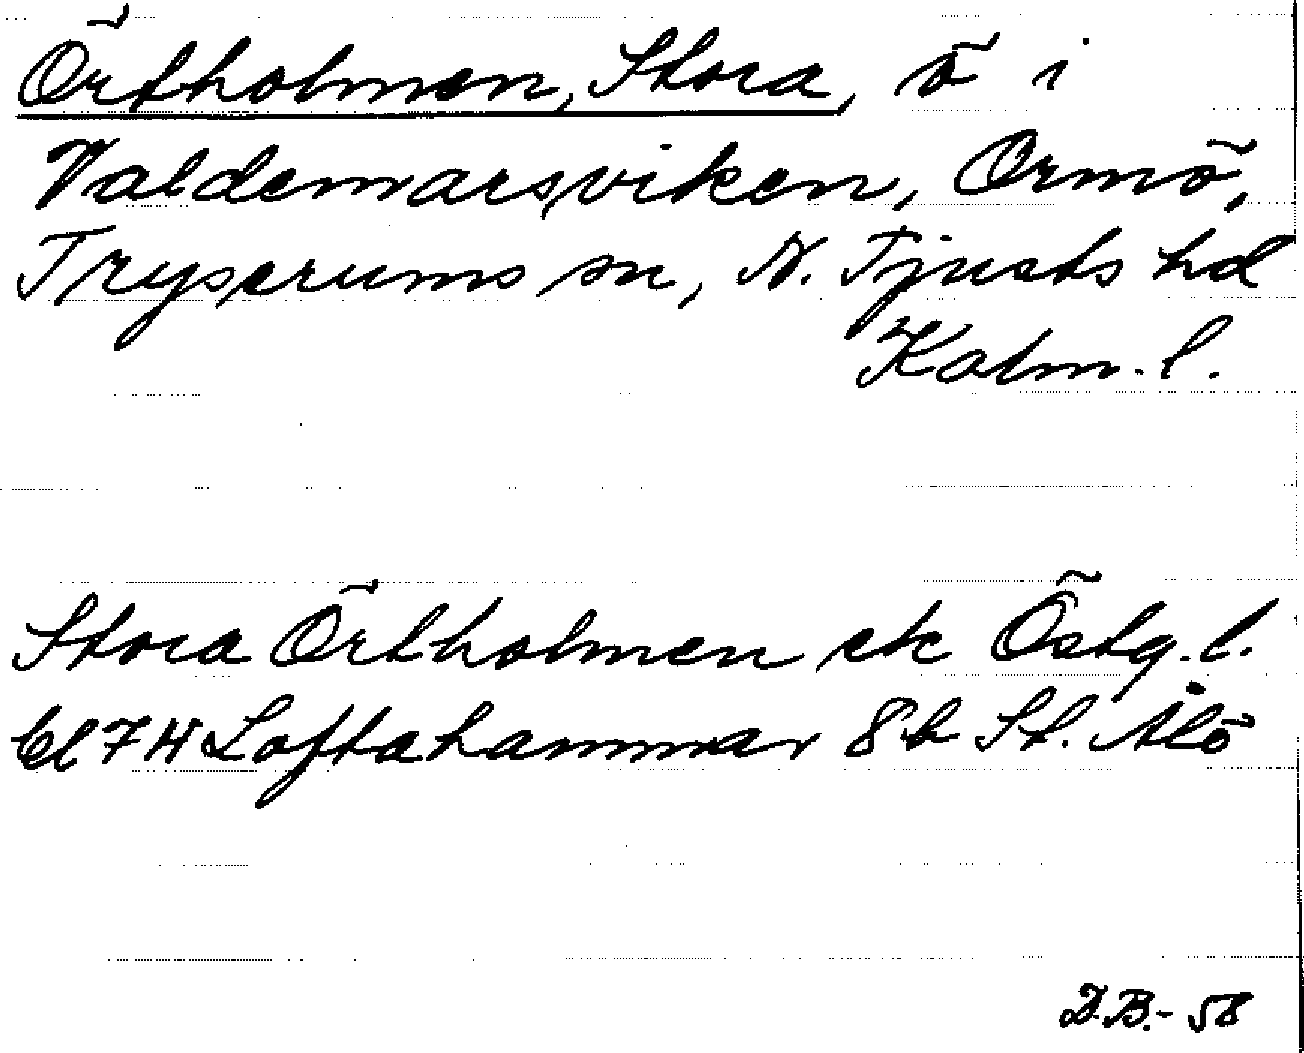 Örtholmen, Stora, ö i
Valdemarsviken, Ormö,
Tryserums sn, N. Tjusts hd
Kalm. l.
Stora Örtholmen ek Östg. l.
bl 7 H Loftahammar 8 b St. Ålö
D.B.- 58